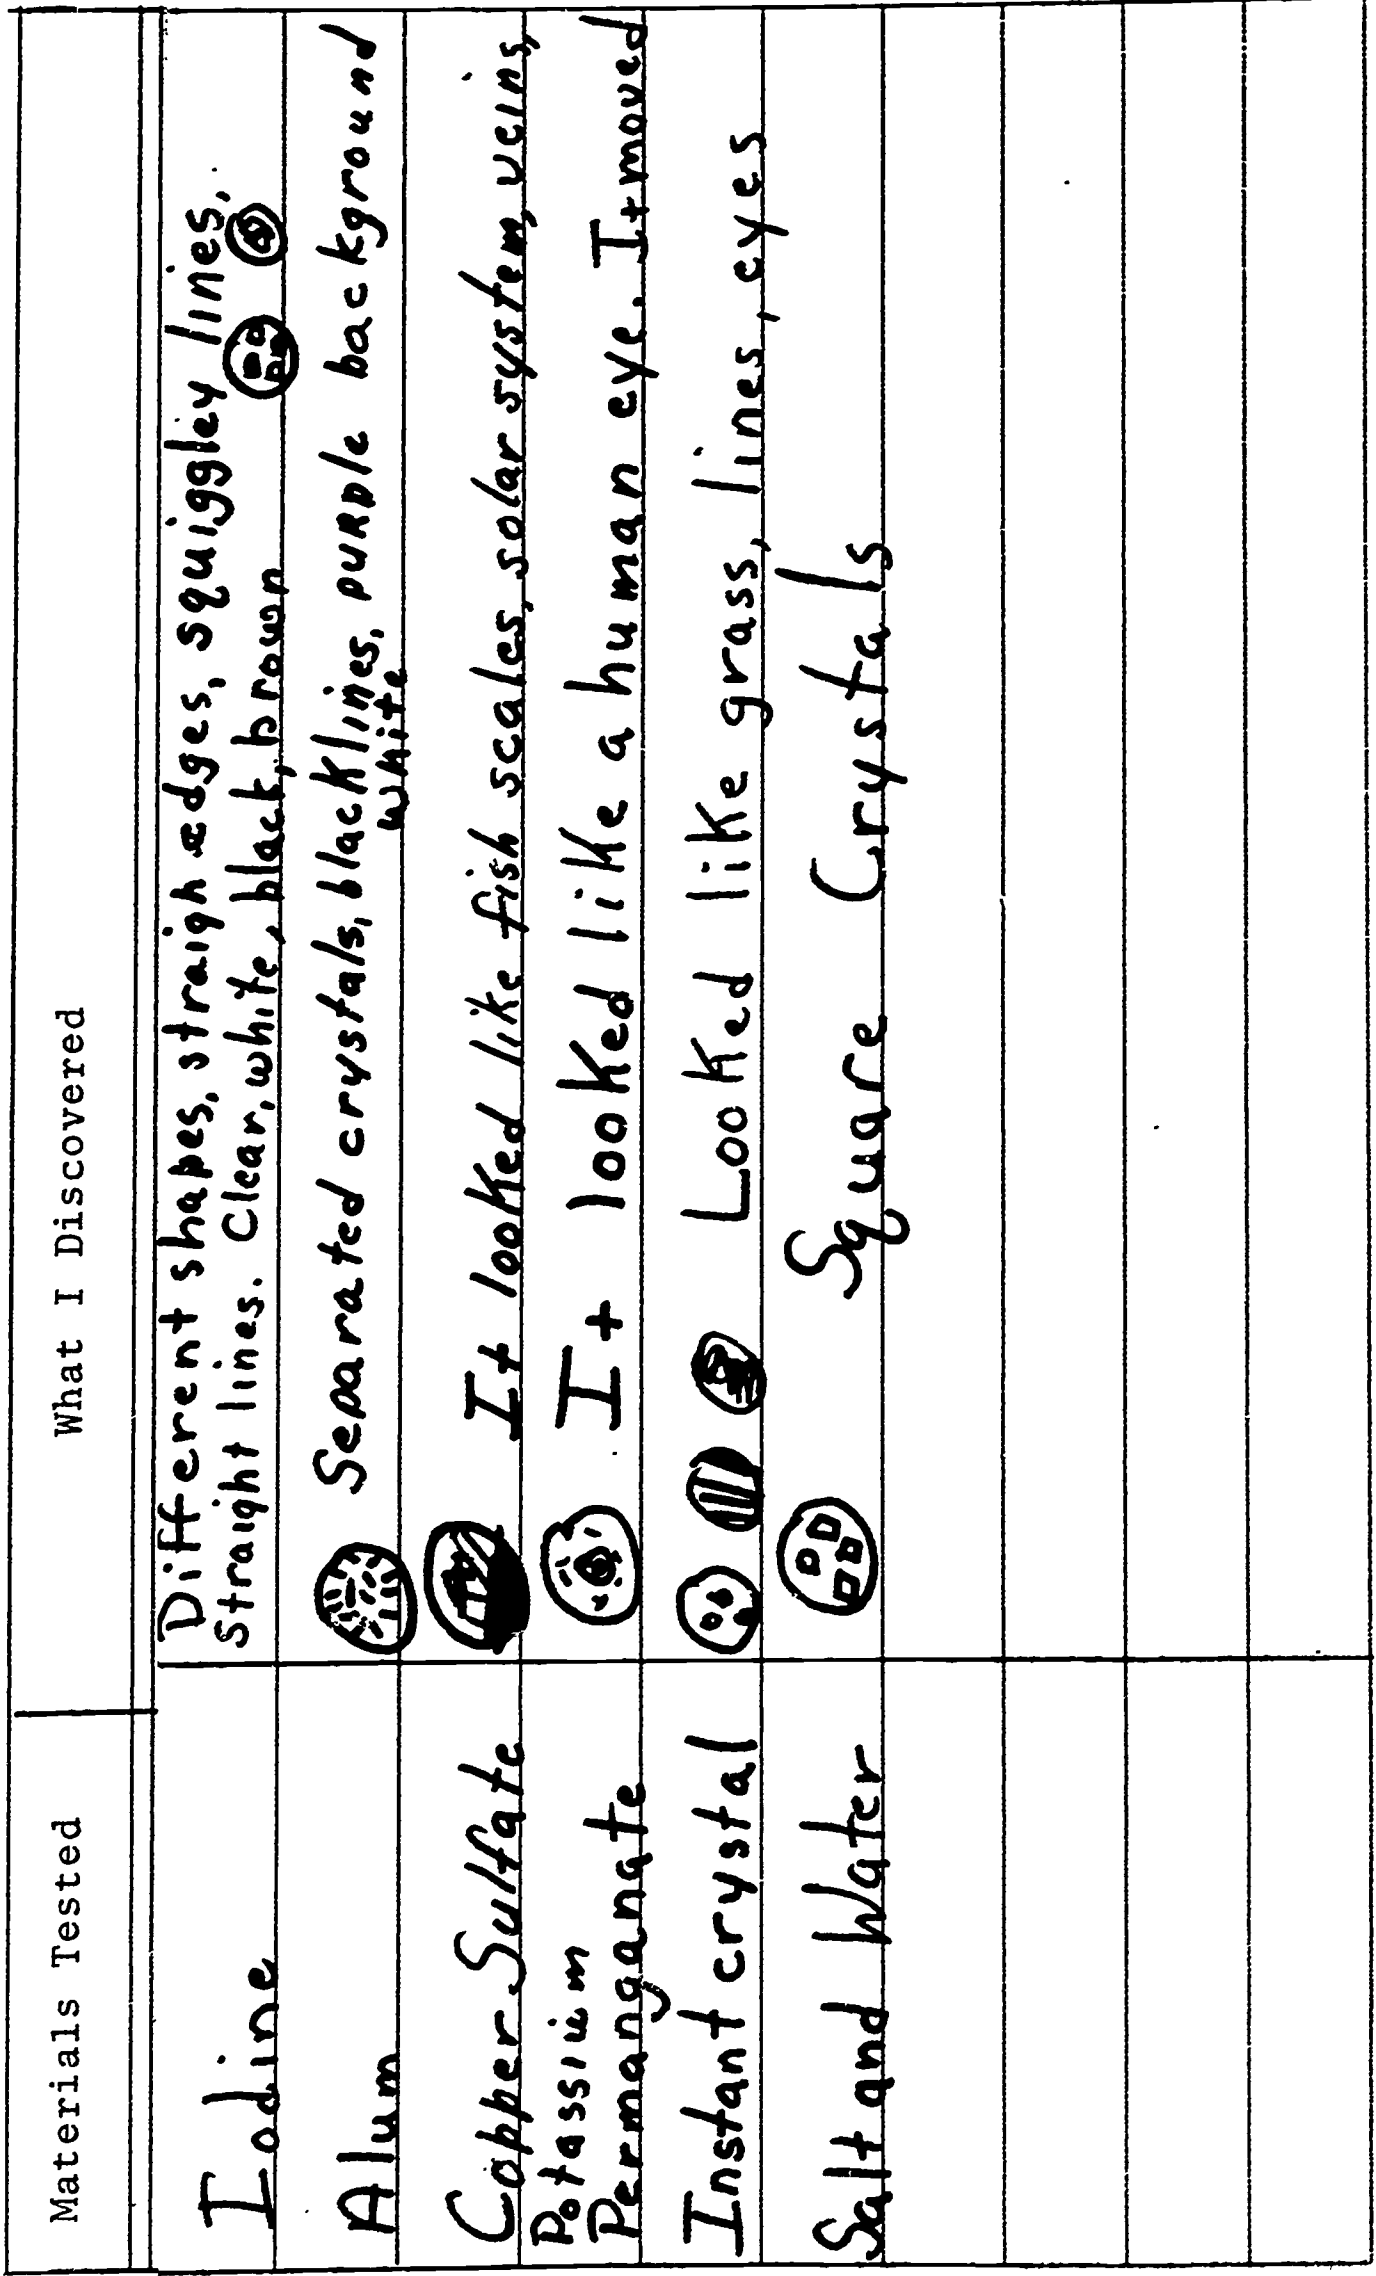 Materials Tested
What I Discovered
Iodine
Different shapes, straigh edges, squiggley lines.
Straight lines. Clear, white, black, brown
Alum
Separated crystals, black lines, purple background
white
Copper Sulfate
It looked like fish scales, solar system, veins,
Potassium
Permanganate
It looked like a human eye. It moved
Instant crystal
Looked like grass, lines, eyes
Salt and Water
Square Crystals